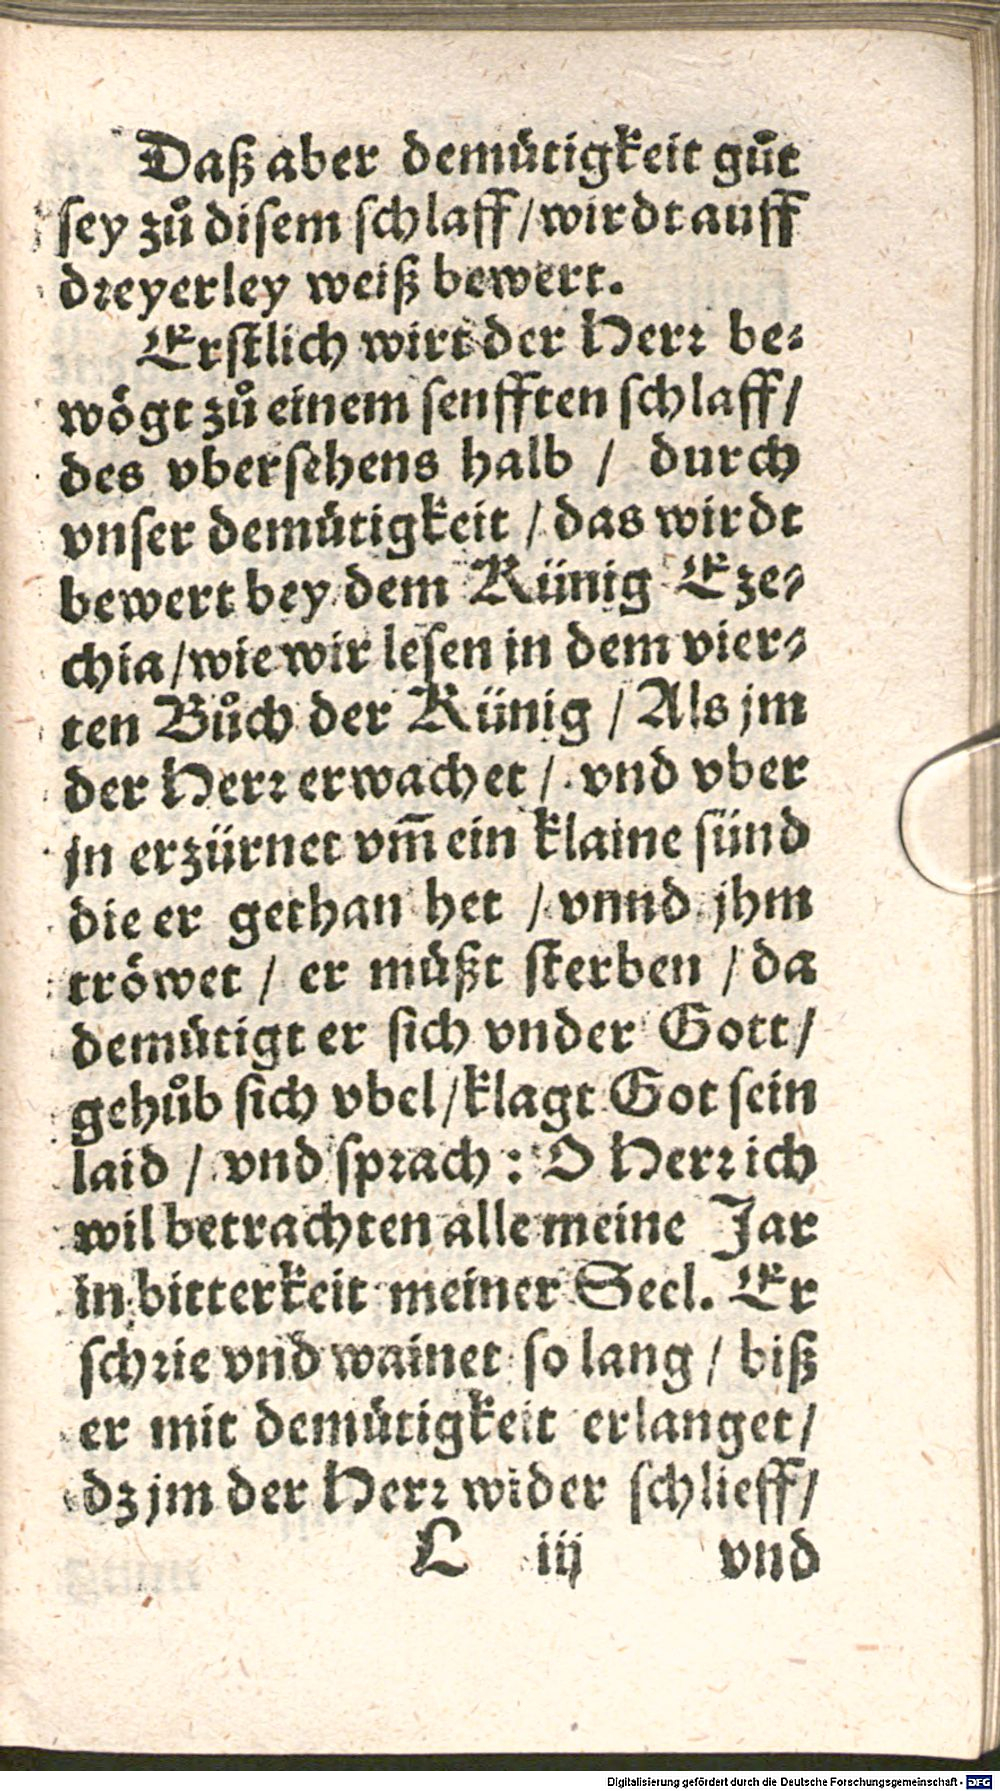 Daß aber demütigkeit gůt
sey zů disem schlaff/wirdt auff
dreyerley weiß bewert.
Erstlich wirt der Herr be-
wögt zů einem senfften schlaff/
des vbersehens halb / durch
vnser demütigkeit / das wirdt
bewert bey dem Künig Eze-
chia/wie wir lesen in dem vier-
ten Bůch der Künig / Als jm
der Herr erwachet / vnd vber
jn erzürnet vm̃ ein klaine sünd
die er gethan het / vnnd jhm
tröwet / er müßt sterben / da
demütigt er sich vnder Gott/
gehůb sich vbel/klagt Got sein
laid / vnd sprach : O Herr ich
wil betrachten alle meine Jar
in bitterkeit meiner Seel. Er
schrie vnd wainet so lang / biß
er mit demütigkeit erlanget/
dz jm der Herr wider schlieff/
L iij vnd
Digitalisierung gefördert durch die Deutsche Forschungsgemeinschaft - DFG